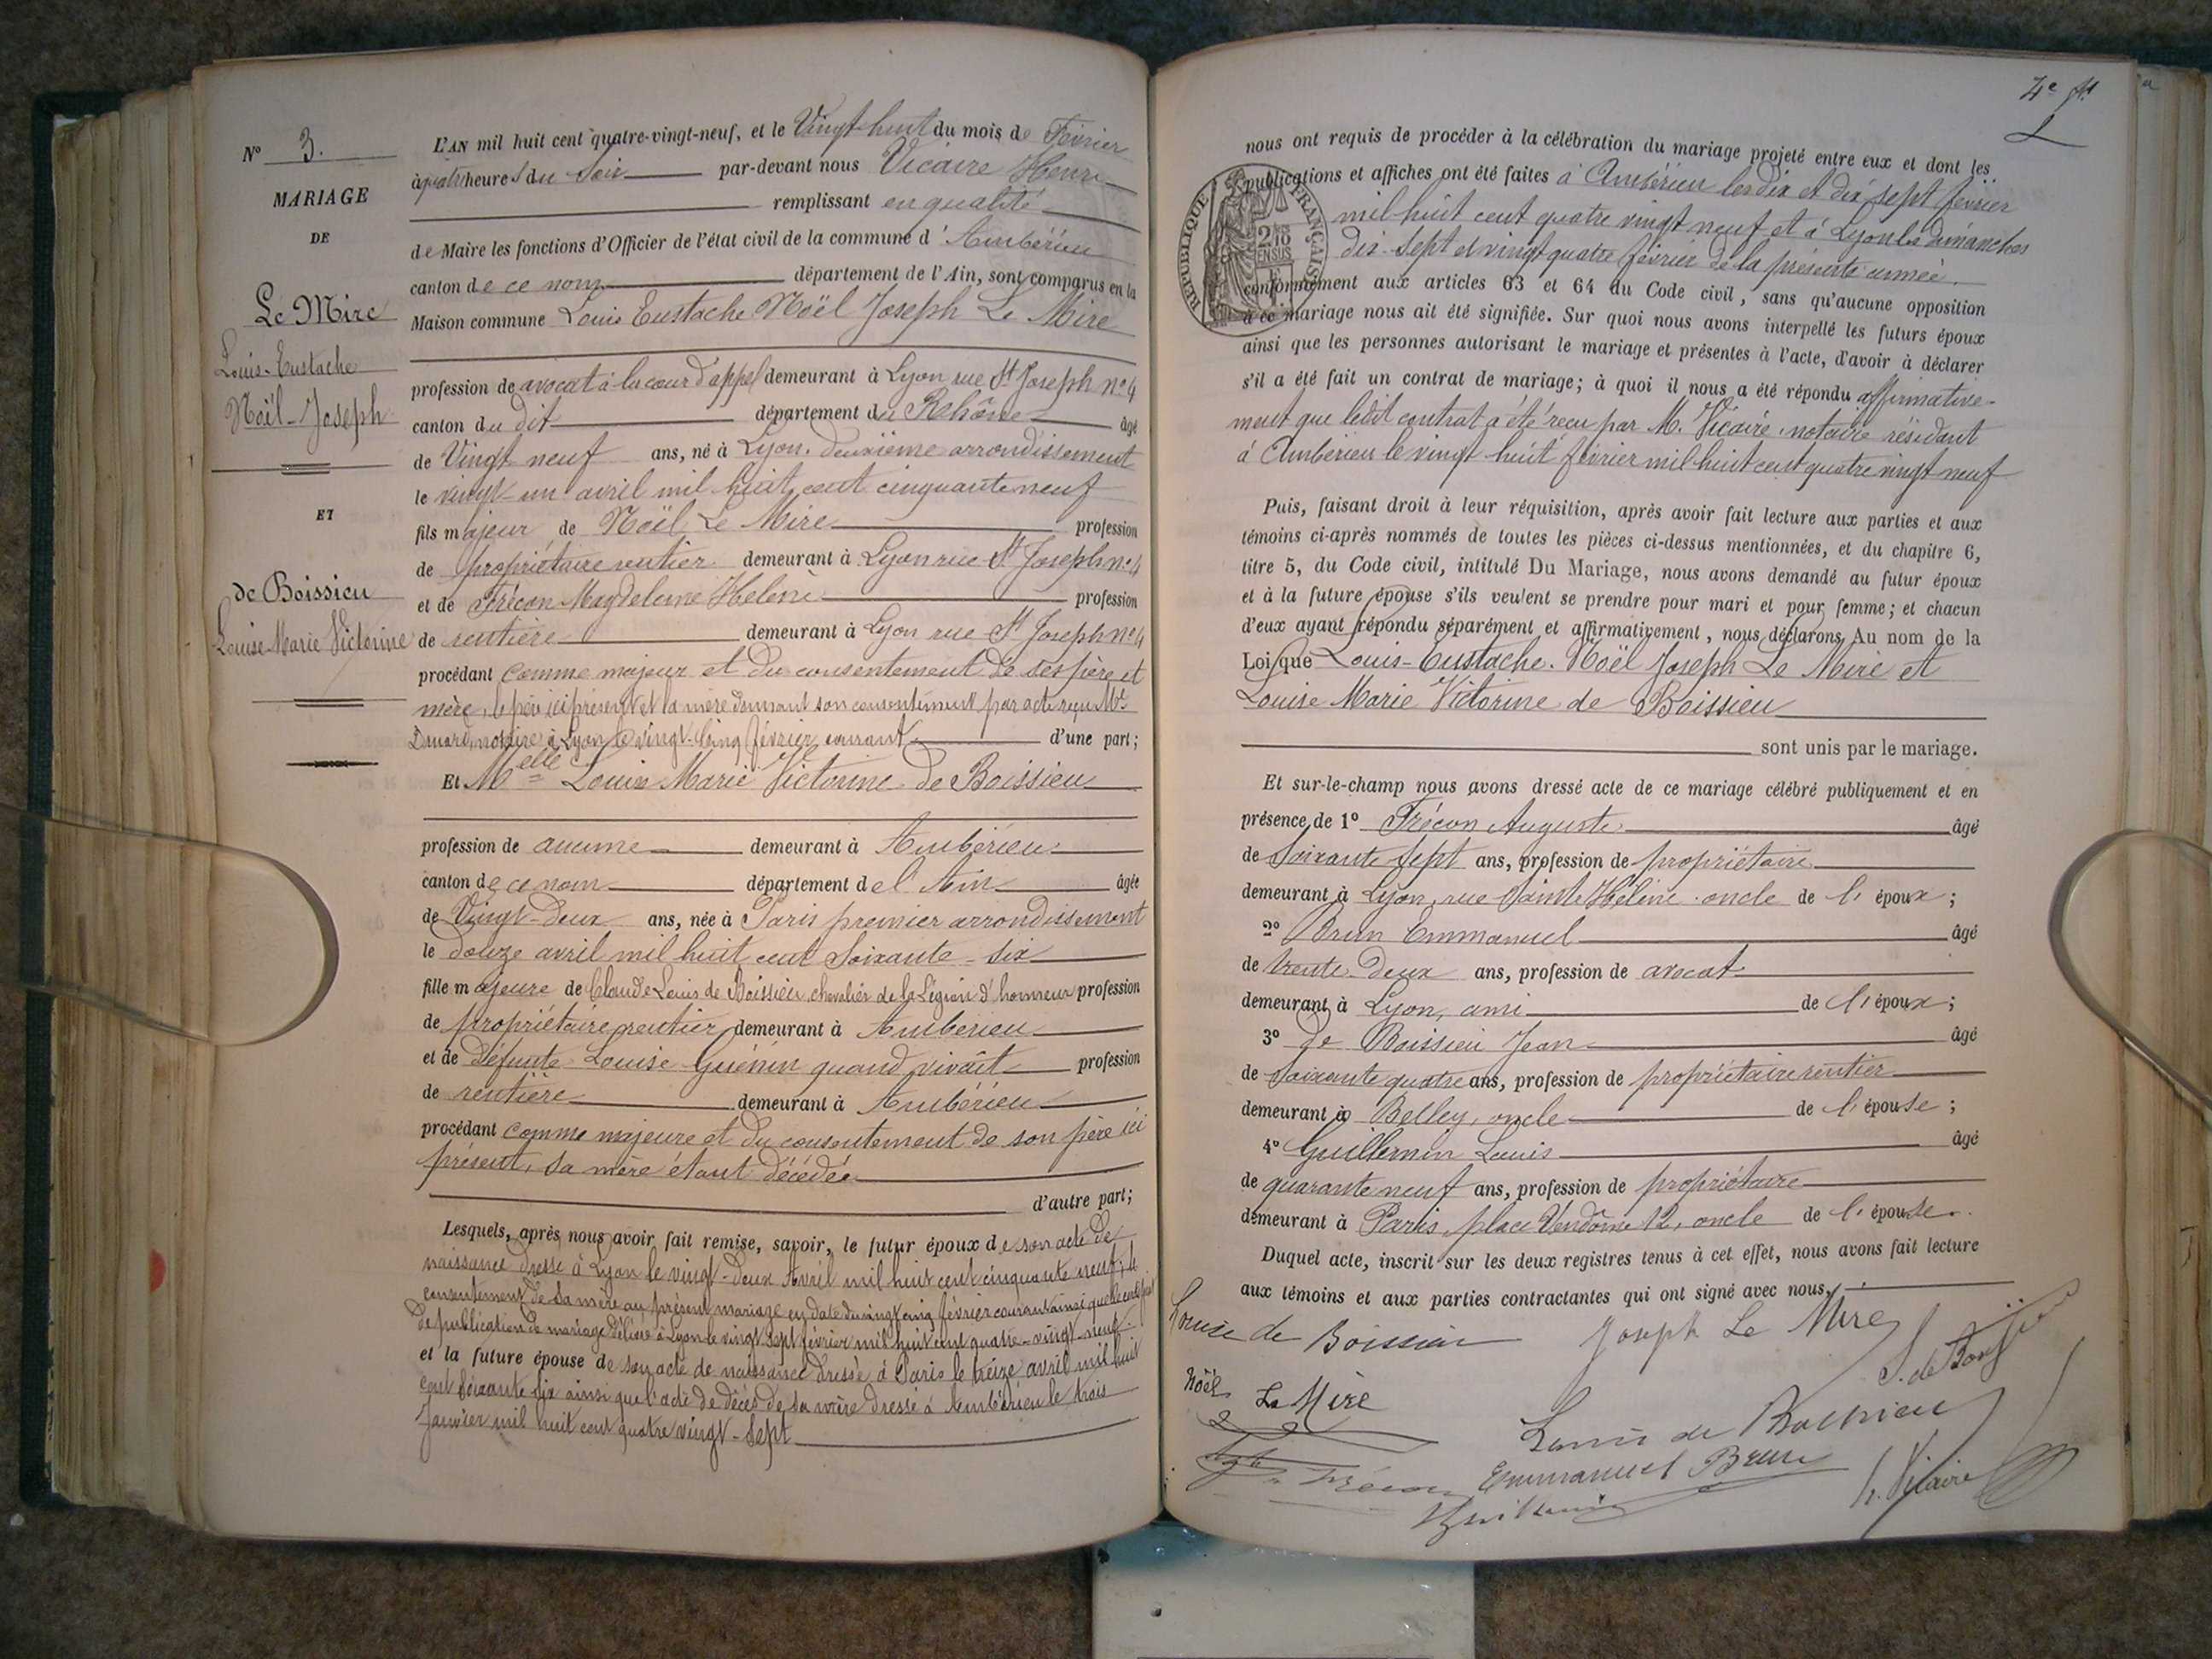 N° 3.
MARIAGE
DE
Le Mire
Louis-Eustache
Noël-Joseph
ET
de Boissieu
Louise Marie Victorine
L'AN mil huit cent quatre-vingt-neuf, et le Vingt-huit du mois de Février
à quatre heures du Soir par-devant nous Vicaire Henri
remplissant en qualité
de Maire les fonctions d'Officier de l'état civil de la commune d'Ambérieu
canton de ce nom département de l'Ain, sont comparus en la
Maison commune Louis Eustache Noël Joseph Le Mire
profession de avocat à la cour d'appel demeurant à Lyon rue St Joseph n° 4
canton du dit département du Rhône âgé
de Vingt neuf ans, né à Lyon. deuxième arrondissement
le vingt-un avril mil huit cent cinquante neuf
fils majeur de Noël Le Mire profession
de propriétaire rentier demeurant à Lyon rue St Joseph n° 4
et de Frécon Magdeleine Hélène profession
de rentière demeurant à Lyon rue St Joseph n° 4
procédant comme majeur et du consentement de ses père et
mère, le père ici présent et la mère donnant son consentement par acte reçu Me
notaire à Lyon le vingt-cinq février courant d'une part;
Et Melle Louise Marie Victorine de Boissieu
profession de aucune demeurant à Ambérieu
canton de ce nom département de l'Ain âgée
de Vingt-deux ans, née à Paris premier arrondissement
le douze avril mil huit cent Soixante-six
fille majeure de Claude Louis de Boissieu chevalier de la Légion d'honneur profession
de propriétaire rentier demeurant à Ambérieu
et de défunte Louise Guénin quand vivait profession
de rentière demeurant à Ambérieu
procédant comme majeure et du consentement de son père ici
présent, sa mère étant décédée
d'autre part;
Lesquels, après nous avoir fait remise, savoir, le futur époux de son acte de
naissance dressé à Lyon le vingt-deux Avril mil huit cent cinquante neuf, le
consentement de sa mère au présent mariage en date du vingt cinq février courant ainsi que le certificat
de publication de mariage délivré à Lyon le vingt sept février mil huit cent quatre-vingt-neuf.
et la future épouse de son acte de naissance dressé à Paris le treize avril mil huit
cent soixante six ainsi que l'acte de décès de sa mère dressé à Ambérieu le trois
Janvier mil huit cent quatre vingt-sept
4e
nous ont requis de procéder à la célébration du mariage projeté entre eux et dont les
publications et affiches ont été faites à Ambérieu les dix et dix sept février
mil huit cent quatre vingt neuf et à Lyon les dimanches
dix-sept et vingt quatre février de la présente année.
RÉPUBLIQUE FRANÇAISE
EN SUS
conformément aux articles 63 et 64 du Code civil, sans qu'aucune opposition
à ce mariage nous ait été signifiée. Sur quoi nous avons interpellé les futurs époux
ainsi que les personnes autorisant le mariage et présentes à l'acte, d'avoir à déclarer
s'il a été fait un contrat de mariage; à quoi il nous a été répondu affirmative-
ment que ledit contrat a été reçu par M. Vicaire notaire résidant
à Ambérieu le vingt huit février mil huit cent quatre vingt neuf
Puis, faisant droit à leur réquisition, après avoir fait lecture aux parties et aux
témoins ci-après nommés de toutes les pièces ci-dessus mentionnées, et du chapitre 6,
titre 5, du Code civil, intitulé Du Mariage, nous avons demandé au futur époux
et à la future épouse s'ils veulent se prendre pour mari et pour femme; et chacun
d'eux ayant répondu séparément et affirmativement, nous déclarons Au nom de la
Loi que Louis-Eustache. Noël Joseph Le Mire et
Louise Marie Victorine de Boissieu
sont unis par le mariage.
Et sur-le-champ nous avons dressé acte de ce mariage célébré publiquement et en
présence de 1° Frécon Auguste âgé
de Soixante sept ans, profession de propriétaire
demeurant à Lyon, rue Sainte Hélène oncle de l'époux;
2° Brun Emmanuel âgé
de trente-deux ans, profession de avocat
demeurant à Lyon, ami de l'époux;
3° de Boissieu Jean âgé
de soixante quatre ans, profession de propriétaire rentier
demeurant à Belley, oncle de l'épouse;
4° Guillemin Louis âgé
de quarante neuf ans, profession de propriétaire
demeurant à Paris, place Vendôme 12, oncle de l'épouse.
Duquel acte, inscrit sur les deux registres tenus à cet effet, nous avons fait lecture
aux témoins et aux parties contractantes qui ont signé avec nous.
Louise de Boissieu Joseph Le Mire
Noël Le Mire
Louis de Boissieu
Frécon Emmanuel Brun
Guillemin H. Vicaire